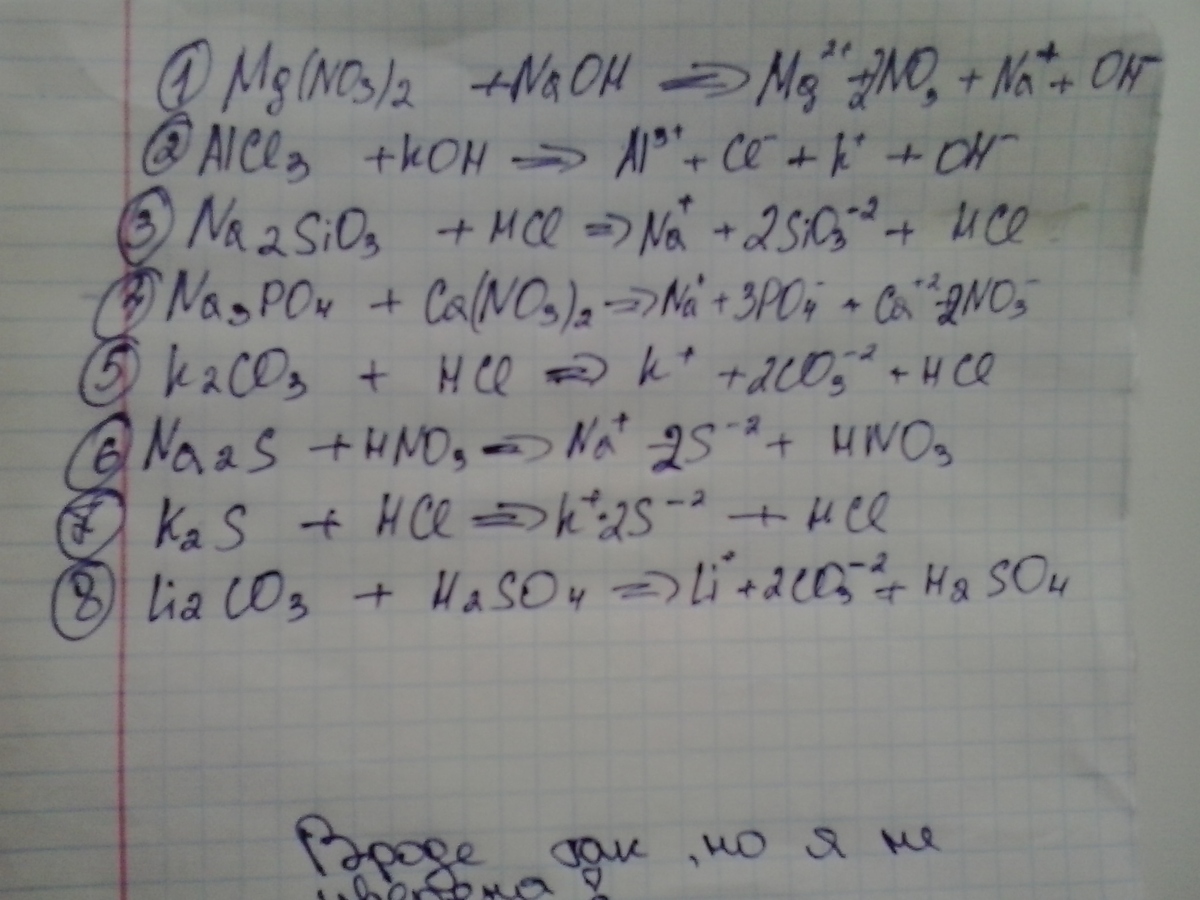 ① Mg(NO₃)₂ + NaOH ⇒ Mg²⁺ + 2NO₃ + Na⁺ + OH⁻
② AlCl₃ + KOH ⇒ Al³⁺ + Cl⁻ + K⁺ + OH⁻
③ Na₂SiO₃ + HCl ⇒ Na⁺ + 2SiO₃⁻² + HCl
Na₃PO₄ + Ca(NO₃)₂ ⇒ Na⁺ + 3PO₄⁻ + Ca⁺² 2NO₃⁻
⑤ K₂CO₃ + HCl ⇒ K⁺ + 2CO₃⁻² + HCl
⑥ Na₂S + HNO₃ ⇒ Na⁺ - 2S⁻² + HNO₃
⑦ K₂S + HCl ⇒ K⁺·2S⁻² + HCl
⑧ Li₂CO₃ + H₂SO₄ ⇒ Li⁺ + 2CO₃⁻² + H₂SO₄
Вроде так, но я не
уверена!